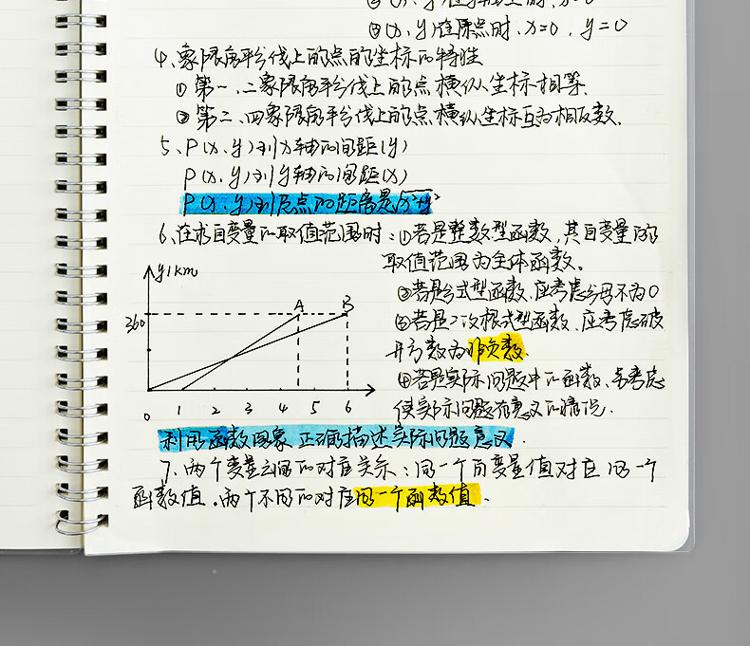 ③(x,y)在原点时,x=0,y=0
4、象限角平分线上的点的坐标的特性
①第一、二象限角平分线上的点横纵坐标相等.
②第二、四象限角平分线上的点横纵坐标互为相反数.
5、P(x,y)到x轴的间距(y)
P(x,y)到y轴的间距(x)
P(x,y)到原点的距离是√x²+y²
6、在求自变量的取值范围时:①若是整数型函数,其自变量的
取值范围为全体函数。
②若是分式型函数,应考虑分母不为0
③若是二次根式型函数、应考虑被
开方数为非负数.
④若是实际问题中的函数、要考虑
使实际问题有意义的情况.
y/km
A
B
360
0 1 2 3 4 5 6
利用函数图象正确描述实际问题意义.
7、两个变量之间的对应关系:同一个自变量值对应同一个
函数值.两个不同的对应同一个函数值.